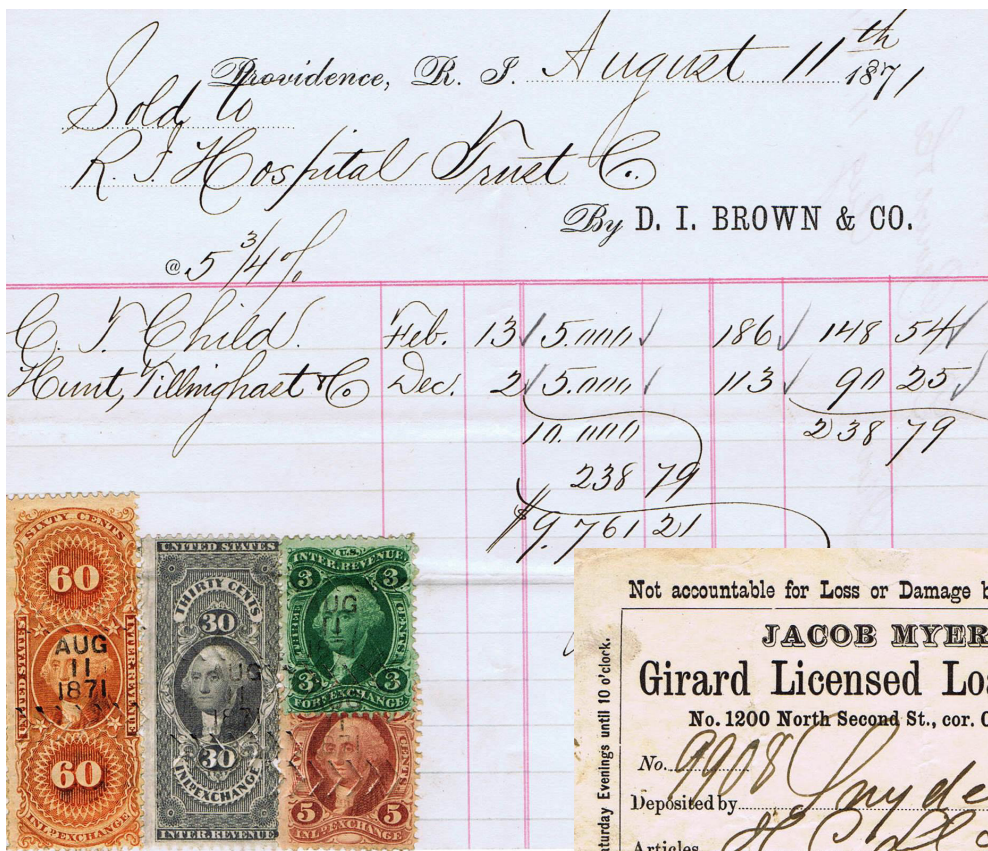 Providence, R. I. August 11th 1871
Sold to
R. I. Hospital Trust Co.
By D. I. BROWN & CO.
@ 5 3/4 %
C. T. Child. Feb. 13 5.000 186 148 54
Hunt, Tillinghast & Co Dec. 2 5.000 113 90 25
10.000 238 79
238 79
$9.761 21
SIXTY CENTS
60
UNITED STATES
INTER. REVENUE
AUG
11
1871
60
INL. EXCHANGE
UNITED STATES
THIRTY CENTS
30
30
INL. EXCHANGE
INTER. REVENUE
(U.S.)
INTER. REVENUE
3 3
THREE CENTS
3 3
FOREN. EXCHANGE
CENTS
5 5
INL. EXCHANGE
Not accountable for Loss or Damage b
JACOB MYER
Girard Licensed Loa
No. 1200 North Second St., cor.
aturday Evenings until 10 o'clock.
No. 9908
Deposited by Snyde
Articles